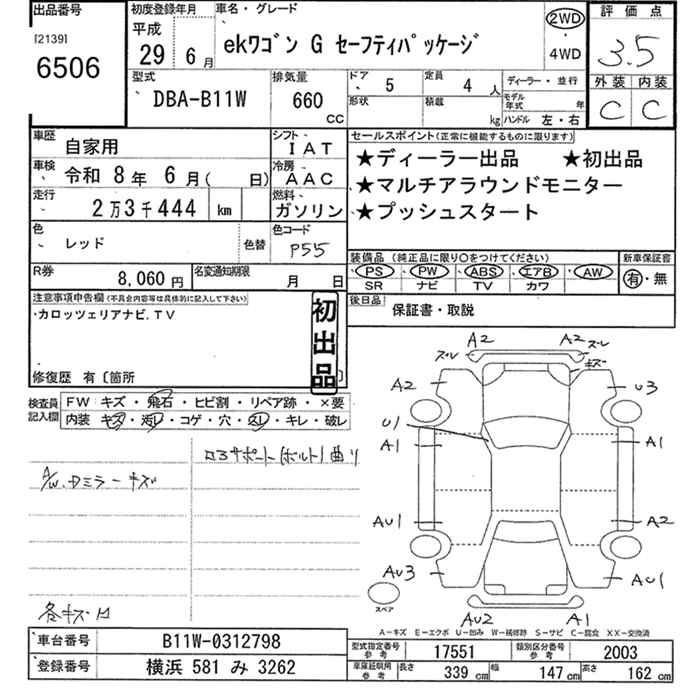 出品番号
[2139]
6506
初度登録年月
平成
29 6月
車名・グレード
ekワゴン G セーフティパッケージ
2WD
・
4WD
評価点
3.5
外装 内装
C C
型式
DBA-B11W
排気量
660
CC
ドア
5
形状
定員
4人
積載
kg
ディーラー・並行
モデル年式 年
ハンドル 左・右
車歴
自家用
シフト
IAT
車検
令和 8年 6月( 日)
冷房
AAC
走行
2万3千444 km
燃料
ガソリン
色
レッド
色替
色コード
P55
R券
8,060円
名変通知期限
月 日
セールスポイント(正常に機能するものに限ります)
★ディーラー出品 ★初出品
★マルチアラウンドモニター
★プッシュスタート
装備品 (純正品に限り○をつけてください)
PS PW ABS エアB AW
SR ナビ TV カワ
新車保証書
有・無
後日品
保証書・取説
注意事項申告欄(不具合内容等は具体的に記入して下さい)
・カロッツェリアナビ.TV
初出品
修復歴 有〔箇所
検査員記入欄
FW キズ・飛石・ヒビ割・リペア跡・×要
内装 キズ・汚レ・コゲ・穴・スレ・キレ・破レ
ロアサポート(ボルト)曲リ
A/W、Dミラーキズ
各キズ・凹
A2 A2
ズレ ズレ
キズ
A2 U3
U1
A1 A1
AU1 A2
AU3 AU1
スペア
AU2 A1
A-キズ E-エクボ U-凹み W-補修跡 S-サビ C-腐食 XX-交換済
車台番号
B11W-0312798
登録番号
横浜 581 み 3262
型式指定番号 参考
17551
類別区分番号 参考
2003
車庫証明用 参考
長さ 339 cm 幅 147 cm 高さ 162 cm